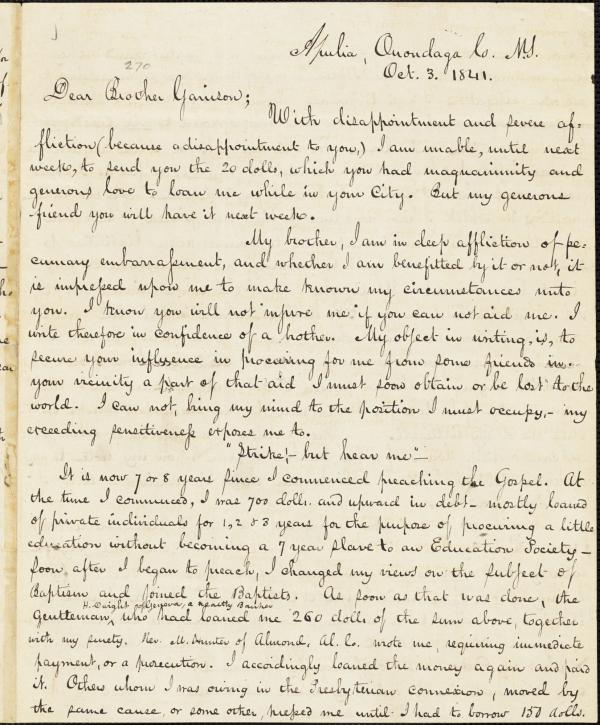 270
Apulia, Onondaga Co. N.Y.
Oct. 3. 1841.
Dear Brother Garrison;
With disappointment and severe af-
fliction (because a disappointment to you,) I am unable, until next
week, to send you the 20 dolls, which you had magnanimity and
generous love to loan me while in your City. But my generous
friend you will have it next week.
My brother, I am in deep affliction of pe-
cuniary embarrassment, and whether I am benefitted by it or not, it
is impressed upon me to make known my circumstances unto
you. I know you will not injure me if you can not aid me. I
write therefore in confidence of a brother. My object in writing, is, to
secure your influence in procuring for me from some friend in
your vicinity a part of that aid I must soon obtain or be lost to the
world. I can not, bring my mind to the position I must occupy,- my
exceeding sensitiveness exposes me to.
"Strike,- but hear me"-
It is now 7 or 8 years since I commenced preaching the Gospel. At
the time I commenced, I was 700 dolls. and upward in debt - mostly loaned
of private individuals for 1, 2 & 3 years for the purpose of procuring a little
education without becoming a 7 year slave to an Education Society -
Soon after I began to preach, I changed my views on the subject of
Baptism and joined the Baptists. As soon as that was done, the
H. Dwight of Geneva, a wealthy Banker
Gentleman, who had loaned me 260 dolls of the sum above, together
with my surety. Rev. M. Hunter of Almond, Al. Co. wrote me, requiring immediate
payment, or a prosecution. I accordingly loaned the money again and paid
it. Others whom I was owing in the Presbyterian connexion, moved by
the same cause, or some other, pressed me until I had to borrow 150 dolls.